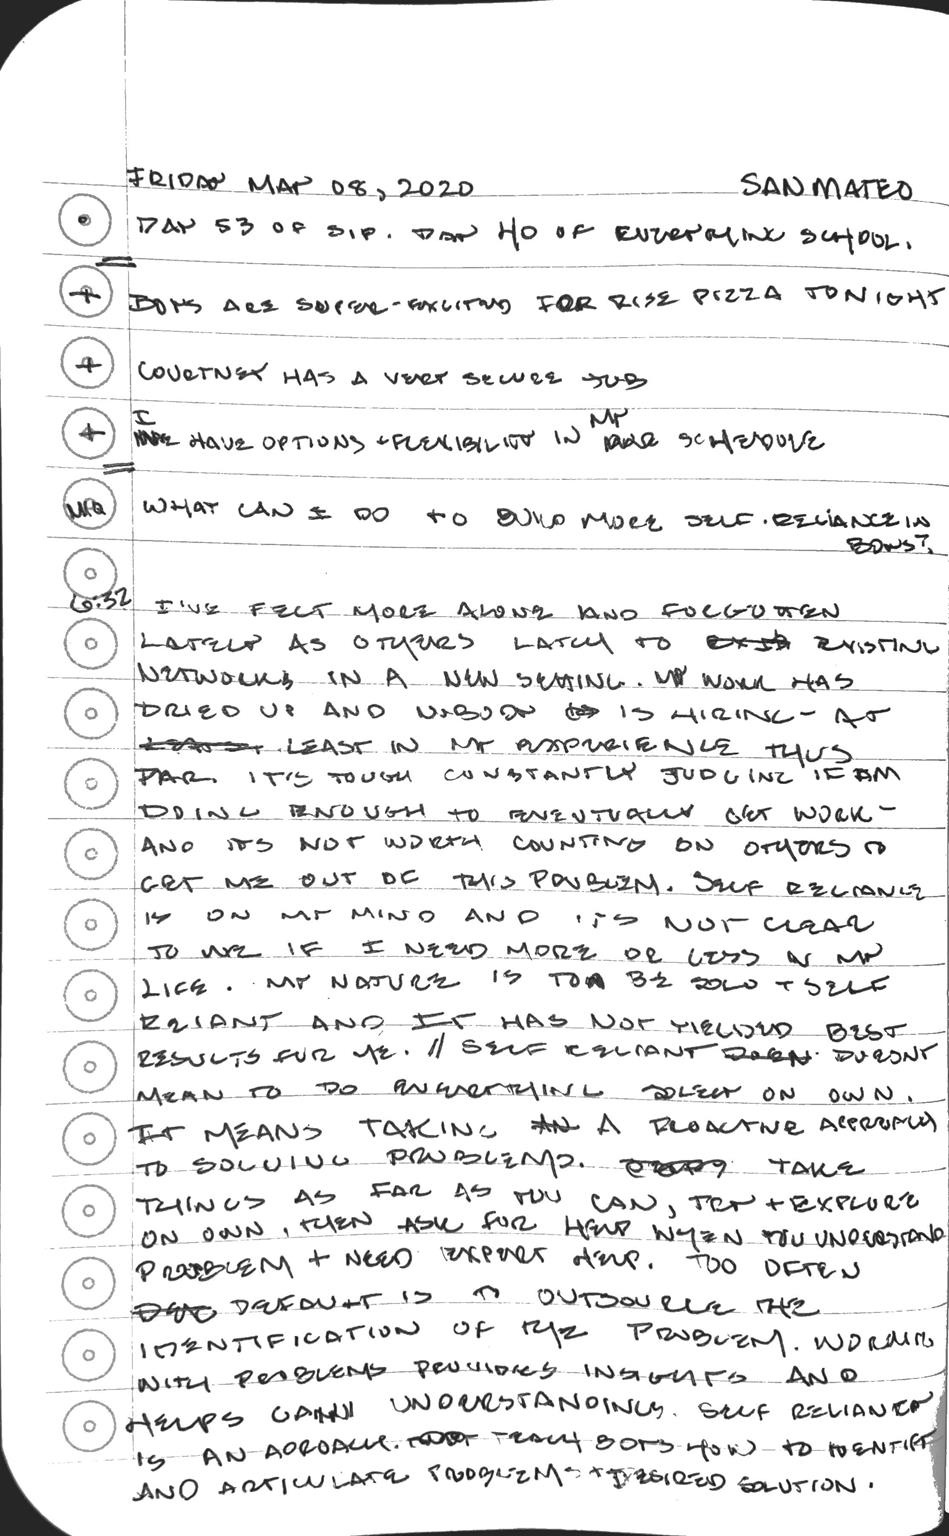 FRIDAY MAY 08, 2020 SAN MATEO
DAY 53 OF SIP. DAY 40 OF EVERYLINK SCHOOL.
+ BOYS ARE SUPER-EXCITED FOR RISE PIZZA TONIGHT
+ COURTNEY HAS A VERY SECURE JOB
+ I HAVE OPTIONS + FLEXIBILITY IN MY SCHEDULE
MFQ WHAT CAN I DO TO BUILD MORE SELF-RELIANCE IN
BOYS?
6:32 I'VE FELT MORE ALONE AND FORGOTTEN
LATELY AS OTHERS LATCH TO EXISTING
NETWORKS IN A NEW SETTING. MY WORK HAS
DRIED UP AND NOBODY IS HIRING - AT
LEAST IN MY EXPERIENCE THUS
FAR. IT'S TOUGH CONSTANTLY JUDGING IF AM
DOING ENOUGH TO EVENTUALLY GET WORK -
AND ITS NOT WORTH COUNTING ON OTHERS TO
GET ME OUT OF THIS PROBLEM. SELF RELIANCE
IS ON MY MIND AND ITS NOT CLEAR
TO ME IF I NEED MORE OR LESS IN MY
LIFE. MY NATURE IS TO BE SOLO + SELF
RELIANT AND IT HAS NOT YIELDED BEST
RESULTS FOR ME. // SELF RELIANT DOESNT
MEAN TO DO EVERYTHING SOLELY ON OWN.
IT MEANS TAKING A PROACTIVE APPROACH
TO SOLVING PROBLEMS. TAKE
THINGS AS FAR AS YOU CAN, TRY + EXPLORE
ON OWN, THEN ASK FOR HELP WHEN YOU UNDERSTAND
PROBLEM + NEED EXPERT HELP. TOO OFTEN
DEFAULT IS TO OUTSOURCE THE
IDENTIFICATION OF THE PROBLEM. WORKING
WITH PROBLEMS PROVIDES INSIGHTS AND
HELPS GAIN UNDERSTANDINGS. SELF RELIANCE
IS AN APPROACH. TEACH BOYS HOW TO IDENTIFY
AND ARTICULATE PROBLEMS + DESIRED SOLUTION.